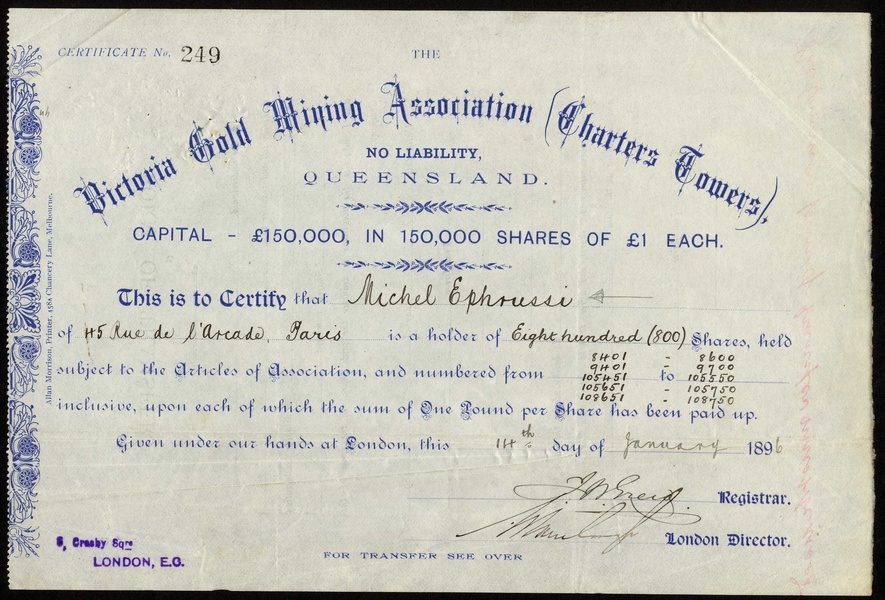 CERTIFICATE No. 249
THE
Victoria Gold Mining Association (Charters Towers),
NO LIABILITY,
QUEENSLAND.
CAPITAL - £150,000, IN 150,000 SHARES OF £1 EACH.
This is to Certify that Michel Ephrussi
of 45 Rue de l'Arcade, Paris is a holder of Eight hundred (800) Shares, held
8401 - 8600
9401 - 9700
subject to the Articles of Association, and numbered from 105451 to 105550
105651 - 105750
108651 - 108750
inclusive, upon each of which the sum of One Pound per Share has been paid up.
Given under our hands at London, this 14th day of January 1896
Registrar.
London Director.
FOR TRANSFER SEE OVER
5, Crosby Sqre
LONDON, E.C.
Allan Morrison, Printer, 458A Chancery Lane, Melbourne.